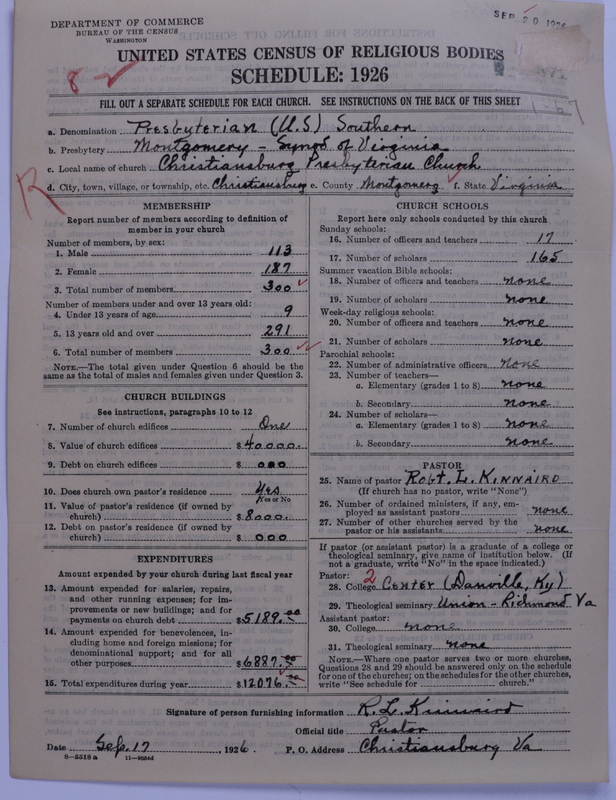 DEPARTMENT OF COMMERCE
BUREAU OF THE CENSUS
WASHINGTON
SEP 20 1926
UNITED STATES CENSUS OF RELIGIOUS BODIES
SCHEDULE: 1926
8-2
FILL OUT A SEPARATE SCHEDULE FOR EACH CHURCH. SEE INSTRUCTIONS ON THE BACK OF THIS SHEET
a. Denomination Presbyterian (U.S.) Southern
b. Presbytery Montgomery - Synod of Virginia
c. Local name of church Christiansburg Presbyterian Church
d. City, town, village, or township, etc. Christiansburg e. County Montgomery f. State Virginia
R
MEMBERSHIP
Report number of members according to definition of
member in your church
Number of members, by sex:
1. Male 113
2. Female 187
3. Total number of members 300
Number of members under and over 13 years old:
4. Under 13 years of age 9
5. 13 years old and over 291
6. Total number of members 300
NOTE.—The total given under Question 6 should be
same as the total of males and females given under Question 3.
CHURCH BUILDINGS
See instructions, paragraphs 10 to 12
7. Number of church edifices One
8. Value of church edifices $40000.
9. Debt on church edifices $ 000
10. Does church own pastor's residence Yes
Yes or No
11. Value of pastor's residence (if owned by
church) $8000.
12. Debt on pastor's residence (if owned by
church) $ 000
EXPENDITURES
Amount expended by your church during last fiscal year
13. Amount expended for salaries, repairs,
and other running expenses; for im-
provements or new buildings; and for
payments on church debt $5189.00
14. Amount expended for benevolences, in-
cluding home and foreign missions; for
denominational support; and for all
other purposes $6887.00
15. Total expenditures during year $12076.00
CHURCH SCHOOLS
Report here only schools conducted by this church
Sunday schools:
16. Number of officers and teachers 17
17. Number of scholars 165
Summer vacation Bible schools:
18. Number of officers and teachers none
19. Number of scholars none
Week-day religious schools:
20. Number of officers and teachers none
21. Number of scholars none
Parochial schools:
22. Number of administrative officers None
23. Number of teachers—
a. Elementary (grades 1 to 8) none
b. Secondary none
24. Number of scholars—
a. Elementary (grades 1 to 8) none
b. Secondary none
PASTOR
25. Name of pastor Robt. L. Kinnaird
(If church has no pastor, write "None")
26. Number of ordained ministers, if any, em-
ployed as assistant pastors none
27. Number of other churches served by the
pastor or his assistants none
If pastor (or assistant pastor) is a graduate of a college or
theological seminary, give name of institution below. (If
not a graduate, write "No" in the space indicated.)
Pastor:
28. College 2 Center (Danville, Ky)
29. Theological seminary Union - Richmond Va
Assistant pastor:
30. College none
31. Theological seminary none
NOTE.—Where one pastor serves two or more churches,
Questions 28 and 29 should be answered only on the schedule
for one of the churches; on the schedules for the other churches,
write "See schedule for church."
Signature of person furnishing information R. L. Kinnaird
Official title Pastor
Date Sep. 17, 1926. P. O. Address Christiansburg Va
8-5518 a